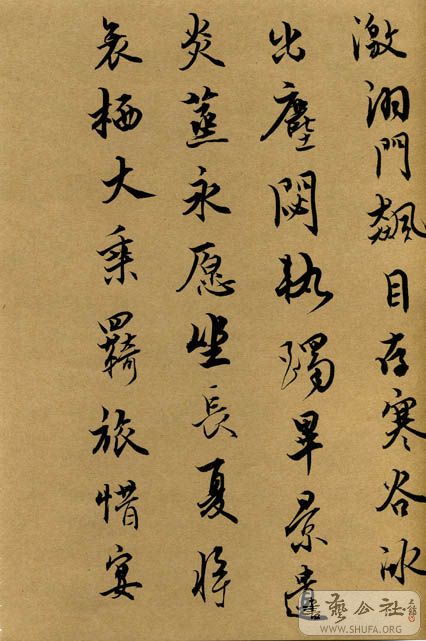 激洞門飆目存寒谷冰
出塵閟軌躅畢景遺
炎蒸永愿坐長夏將
衰栖大乘羇旅惜宴
書藝公社
WWW.SHUFA.ORG